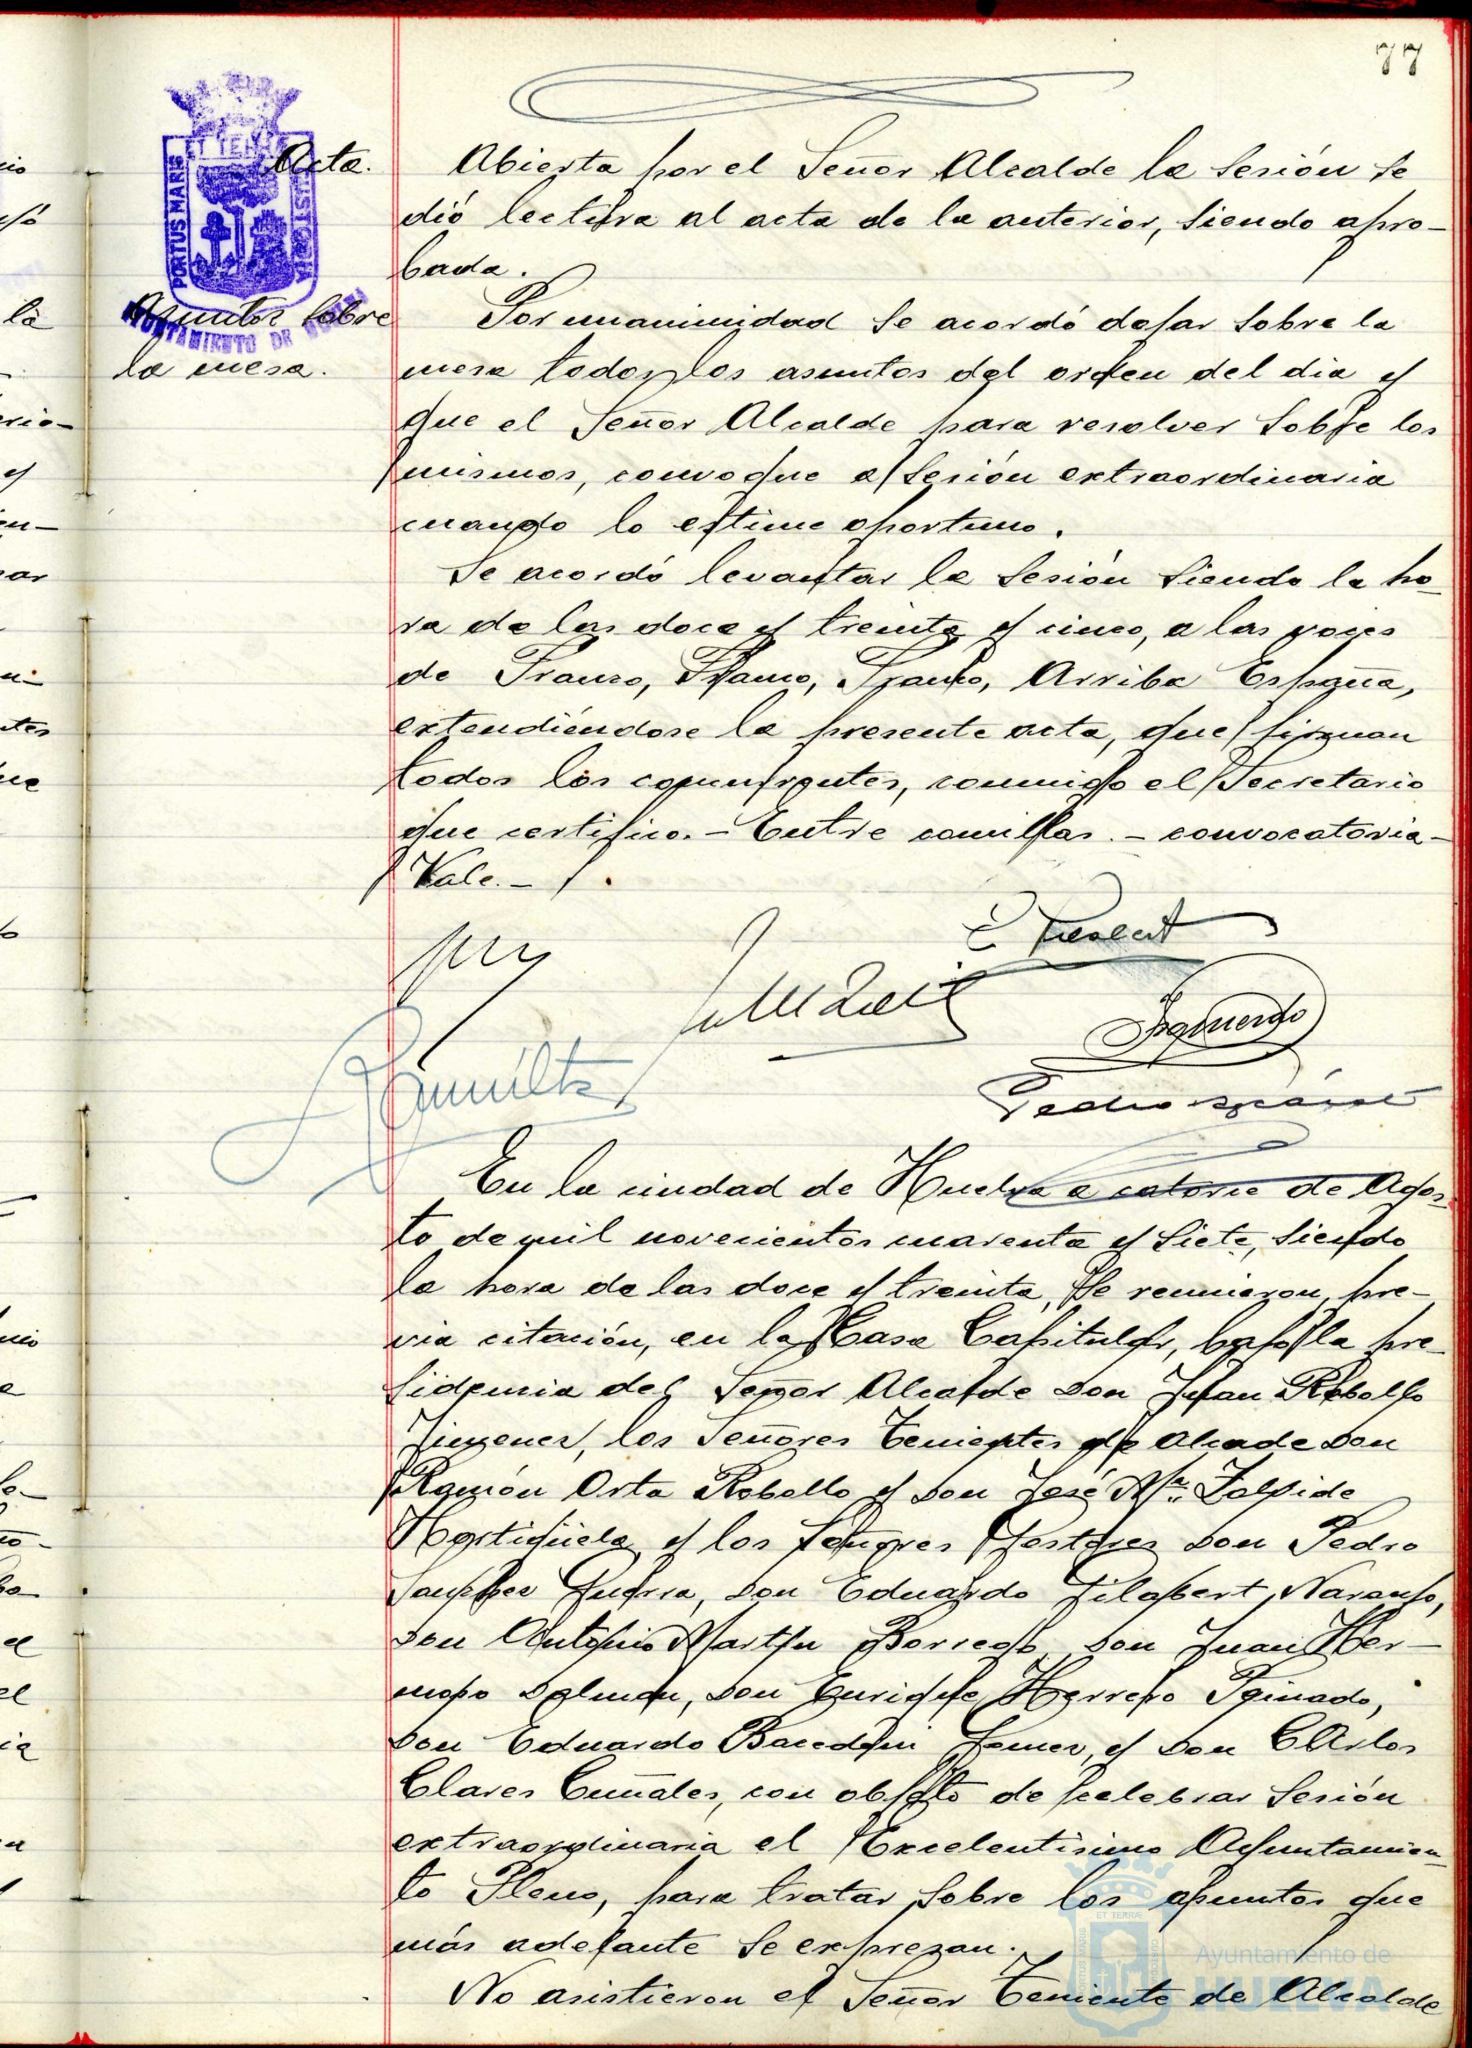 77
PORTUS MARIS
ET TERRÆ
CUSTODIA
AYUNTAMIENTO DE HUELVA
Acta.
Abierta por el Señor Alcalde la Sesión se
dió lectura al acta de la anterior, siendo apro-
bada.
Asuntos sobre
la mesa.
Por unanimidad se acordó dejar sobre la
mesa todos los asuntos del orden del dia y
que el Señor Alcalde para resolver sobre los
mismos, convoque a sesión extraordinaria
cuando lo estime oportuno.
Se acordó levantar la sesión siendo la ho-
ra de las doce y treinta y cinco, a las voces
de Franco, Franco, Franco, Arriba España,
extendiéndose la presente acta, que firman
todos los concurrentes, conmigo el Secretario
que certifico.- Entre comillas.- convocatoria-
Vale.-
Izquierdo
Pedro
En la ciudad de Huelva a catorce de Agos-
to de mil novecientos cuarenta y siete, siendo
la hora de las doce y treinta, se reunieron, pre-
via citación, en la Casa Capitular, bajo la pre-
sidencia del Señor Alcalde Don Juan Rebollo
Jimenez, los Señores Tenientes de Alcade Don
Ramón Orta Rebollo y Don José Mª. Zalvide
Hortigüela y los Señores Gestores Don Pedro
Sanchez Guerra, Don Eduardo Gilabert Naranjo,
Don Antonio Martin Borrego, Don Juan Her-
moso Dolmau, Don Enrique Herrero Peinado,
Don Eduardo Bacedoni Gomez, y Don Carlos
Clares Cuñales, con objeto de celebrar Sesión
extraordinaria el Excelentisimo Ayuntamien-
to Pleno, para tratar sobre los asuntos que
más adelante se expresan.
No asistieron el Señor Teniente de Alcalde
Ayuntamiento de
HUELVA